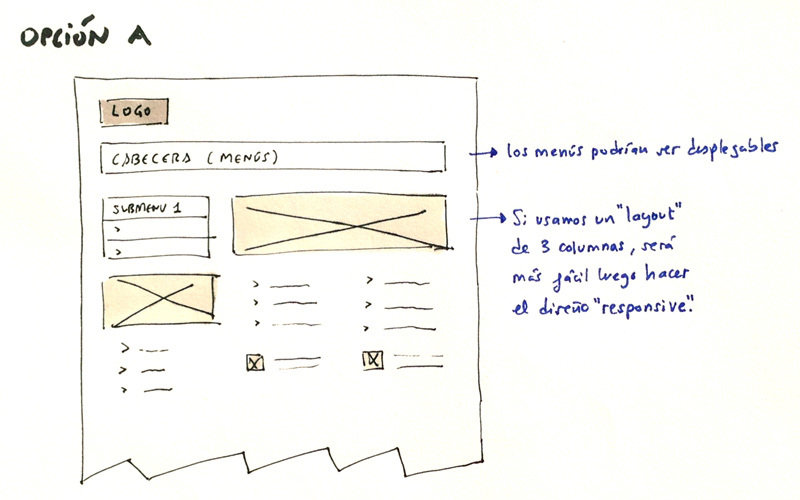 OPCIÓN A
LOGO
CABECERA (MENÚS)
los menús podrían ser desplegables
SUBMENU 1
Si usamos un "layout"
de 3 columnas, será
más fácil luego hacer
el diseño "responsive".